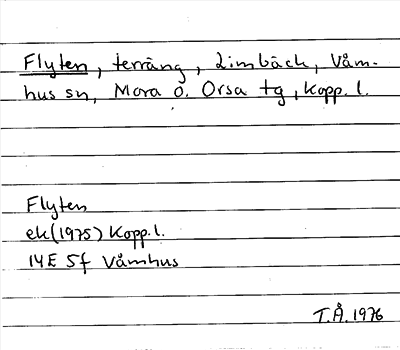 Flyten, terräng, Limbäck, Våm-
hus sn, Mora o. Orsa tg, Kopp. l.
Flyten
ek(1975) Kopp.l.
14E 5f Våmhus
T.Å.1976